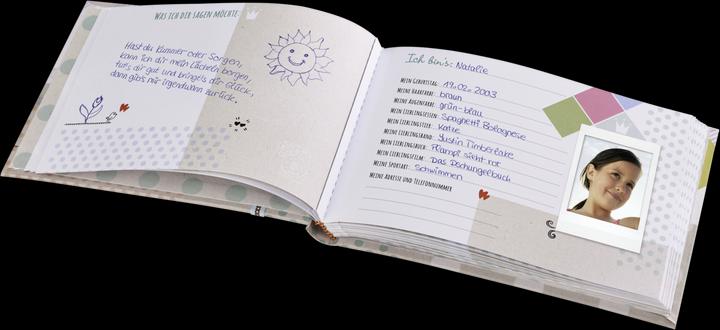 Was ich dir sagen möchte:
Hast du Kummer oder Sorgen,
kann ich dir mein Lächeln borgen,
tut's dir gut und bringt's dir Glück,
dann gib's mir irgendwann zurück.
Ich bin's: Natalie
Mein Geburtstag: 19.02.2003
Meine Haarfarbe: braun
Meine Augenfarbe: grün-blau
Mein Lieblingsessen: Spaghetti Bolognese
Mein Lieblingstier: Katze
Meine Lieblingsband: Justin Timberlake
Mein Lieblingsbuch: sieht rot
Mein Lieblingsfilm: Das Dschungelbuch
Meine Sportart: Schwimmen
Meine Adresse und Telefonnummer